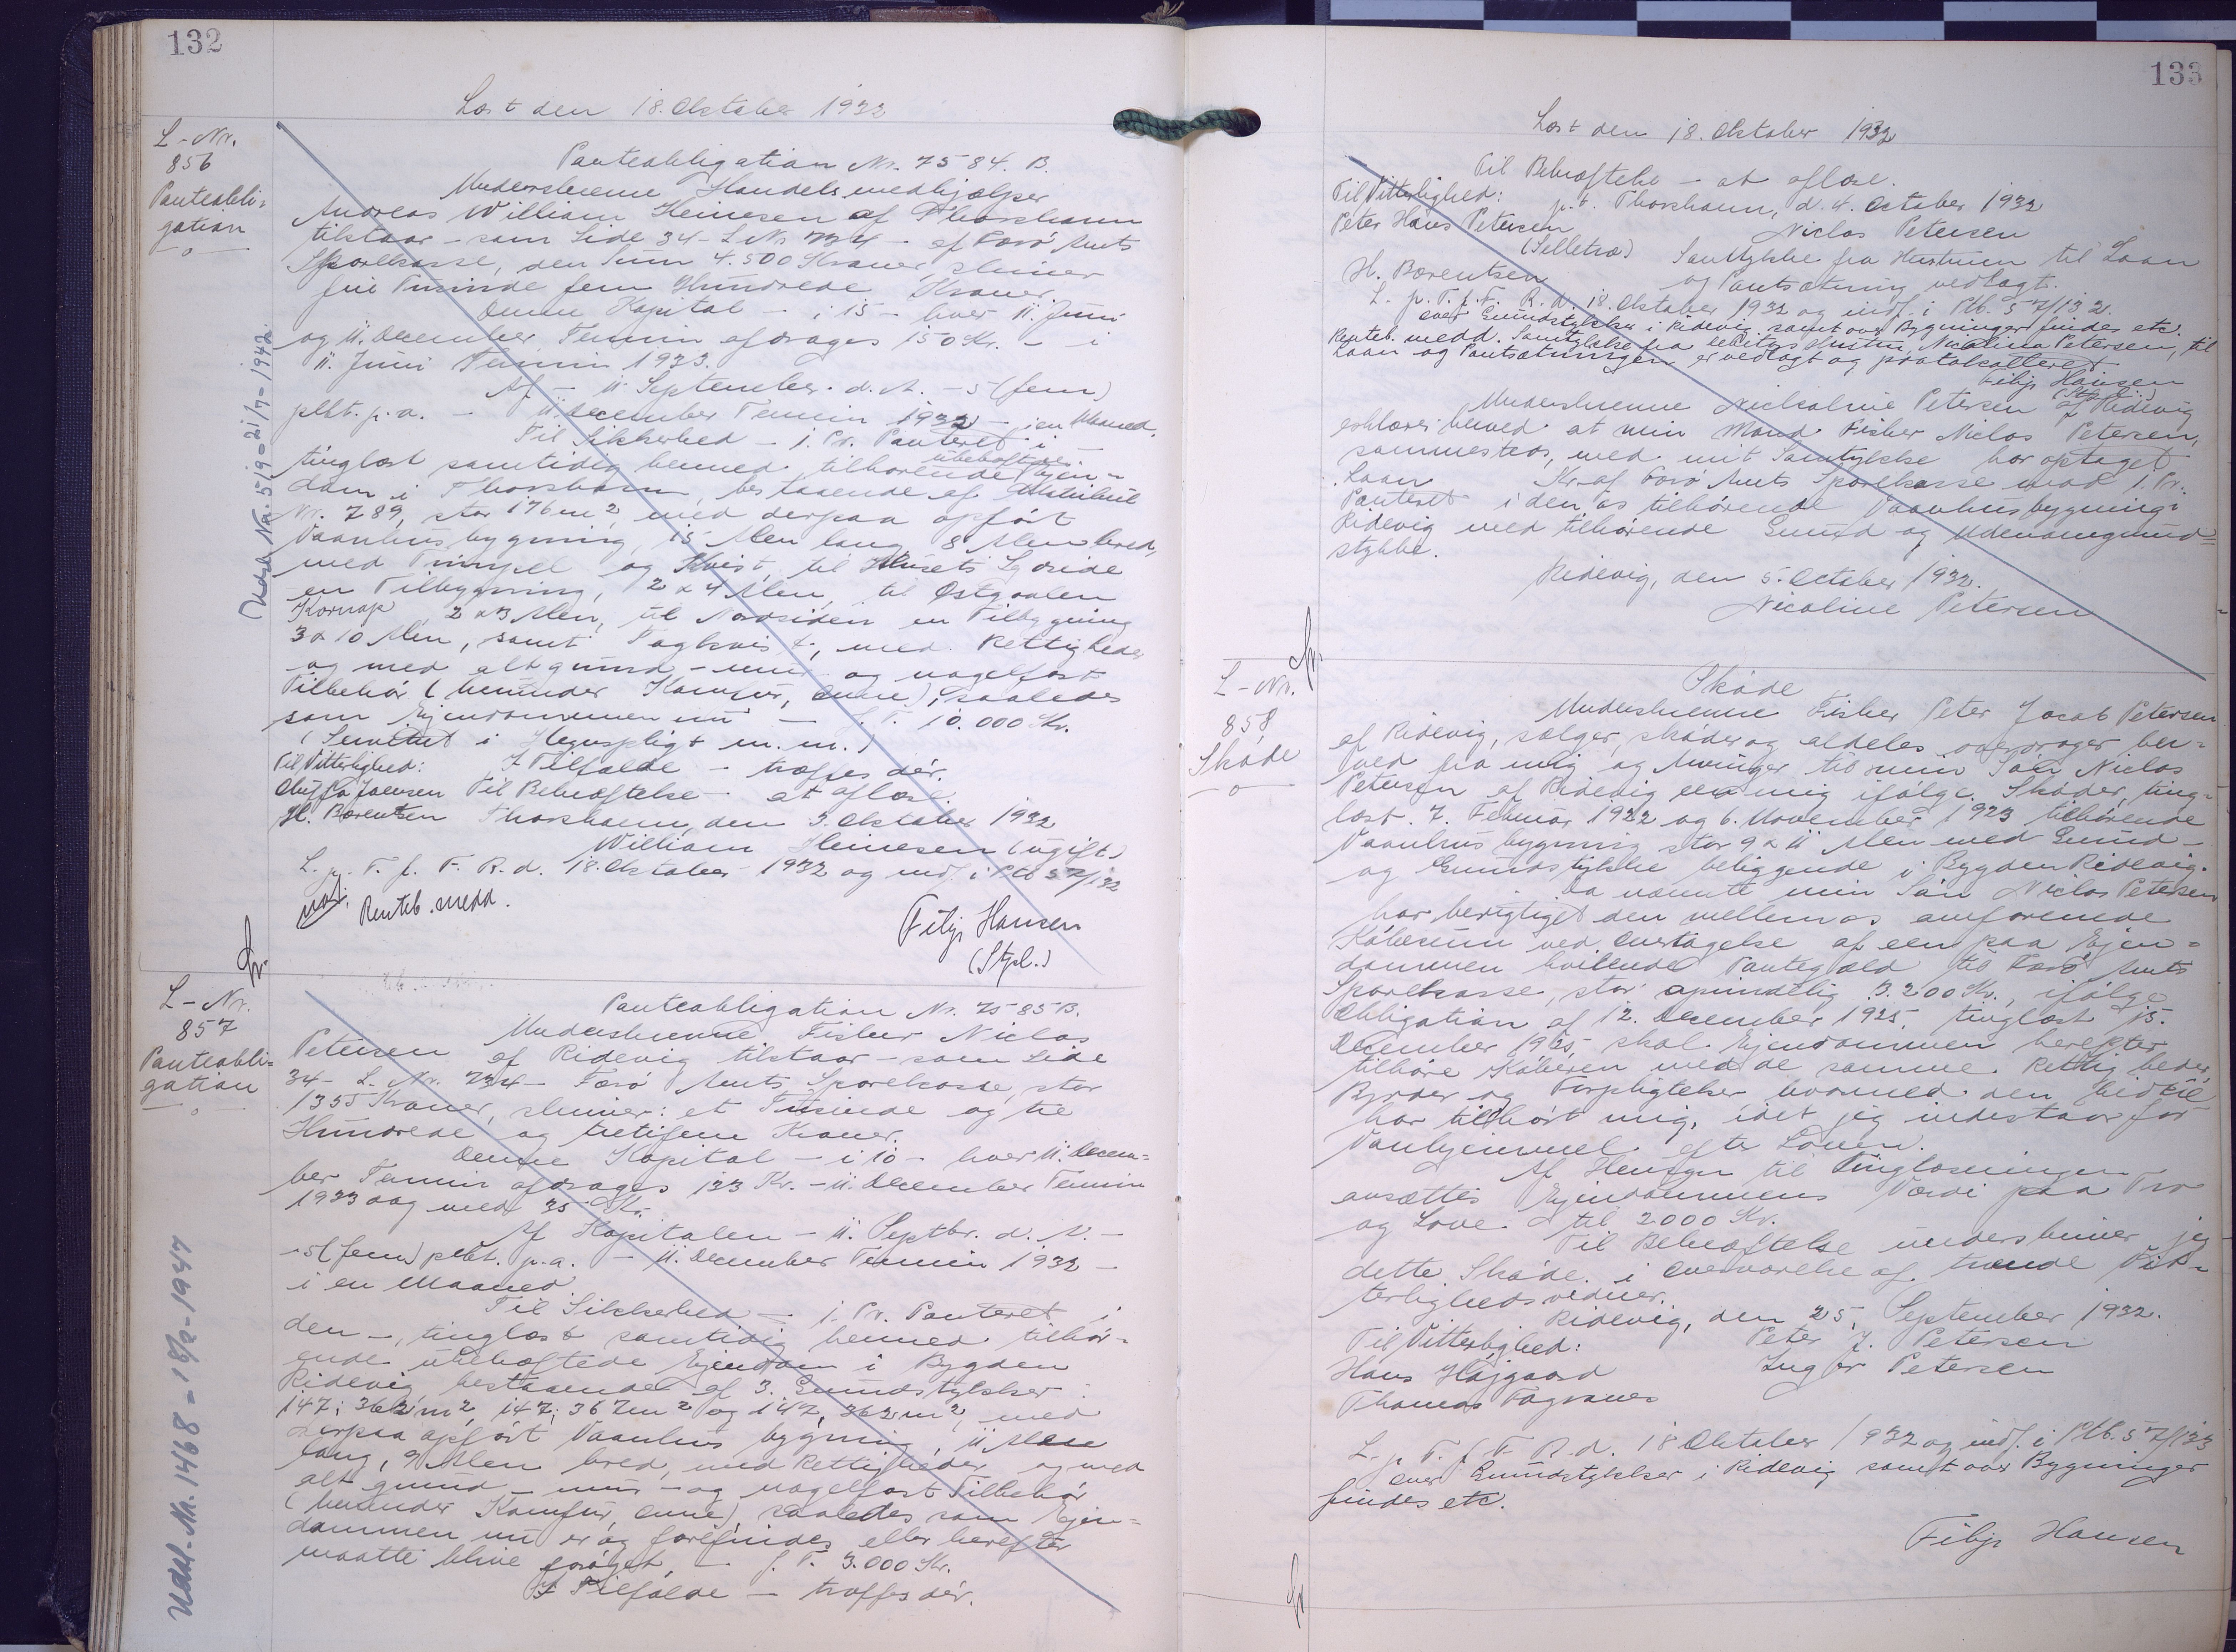 132
Læst den 18. Oktober 1932
L-Nr.
856
Panteobli-
gation
Panteobligation Nr. 7584. B.
Underskrevne Handelsmedhjælper
Andreas William Heinesen af Thorshavn
tilstaar - som Side 34 - L Nr 734 - af Færø Amts
Sparekasse, den Sum 4.500 Kroner, skriver
fire Tusinde fem Hundrede Kroner.
Denne Kapital - i 15 - hver 11. Juni
og 11. December Termin afdrages 150 Kr. - i
11. Juni Termin 1933.
Af - 11 September d. A. - 5 (fem)
pCt. p.a. - 11 December Termin 1932 - i en Maaned.
Til Sikkerhed - 1. Pr. Panteret i
tinglæst samtidig hermed tilhørende ubehæftede Ejen-
dom i Thorshavn, bestaaende af Matrikul
Nr. 789, stor 176 m2, med derpaa opført
Vaanhusbygning, 15 Alen lang 8 Alen bred,
med Trinpel og Kvist, til Husets Sydside
en Tilbygning, 2 x 4 Alen, til Østgavlen
Karnap 2 x 3 Alen, til Nordsiden en Tilbygning
3 x 10 Alen, samt Tagkvist, med Rettigheder
og med alt grund- mur- og nagelfast
Tilbehør (herunder Komfur, Ovne), saaledes
som Ejendommen nu - f. V. 10.000 Kr.
(Servitut i Hegnspligt m.m.)
Til Vitterlighed: I Tilfælde - træffes dér.
Joensen Til Bekræftelse - at aflæse.
H. Børentsen Thorshavn, den 3. Oktober 1932
William Heinesen (ugift)
L. p. T. f. F. R. d. 18. Oktober 1932 og indf. i Ptb 57/132
Renteb. medd.
Filip Hansen
(Stpl.)
Udsl. Nr. 519 = 21/7 = 1942.
L-Nr.
857
Panteobli-
gation
Panteobligation Nr. 7585 B.
Underskrevne Fisker Niclas
Petersen af Ridevig tilstaar - som Side
34 - L. Nr. 734 - Færø Amts Sparekasse, stor
1335 Kroner, skriver: et Tusinde og tre
Hundrede og tretifem Kroner.
Denne Kapital - i 10 - hver 11. Decem-
ber Termin afdrages 133 Kr. - 11. December Termin
1933 dog med 35 Kr.
Af Kapitalen - 11. Septbr. d. A. -
- 5 (fem) pCt. p.a. - 11. December Termin 1932 -
i en Maaned
Til Sikkerhed - 1. Pr. Panteret i
den -, tinglæst samtidig hermed tilhør-
ende ubehæftede Ejendom i Bygden
Ridevig bestaaende af 3. Grundstykker:
147; 362 m2, 147; 367 m2 og 147, 362 m2, med
derpaa opført Vaanhus bygning, 11 Alen
lang, 9 Alen bred, med Rettigheder og med
alt grund - mur - og nagelfast Tilbehør
(herunder Komfur, Ovne), saaledes som Ejen-
dommen nu er og forefindes eller herefter
maatte blive forøget, - f. V. 3.000 Kr.
I Tilfælde - træffes dér.
Udsl. Nr. 1468 = 18/2 - 1947
133
Læst den 18. Oktober 1932
Til Bekræftelse - at aflæse.
Til Vitterlighed: p.t. Thorshavn, d. 4. October 1932
Peter Hans Petersen Niclas Petersen
(Selletræ) Samtykke fra Hustruen til Laan
H. Børentsen og Pantsætning vedlagt.
L. p. T. f. F. R. d. 18. Oktober 1932 og indf. i Ptb. 57/132.
over Grundstykker i Ridevig samt over Bygninger findes etc.
Renteb. medd. Samtykke fra Debitors Hustru, Nicolina Petersen, til
Laan og Pantsætningen er vedlagt og protokolleret.
Filip Hansen
(Stpl.)
Underskrevne Nickoline Petersen af Ridevig
erklærer herved at min Mand Fisker Niclas Petersen,
sammesteds, med mit Samtykke har optaget
Laan Kr. af Færø Amts Sparekasse mod 1. Pr.
Panteret i den os tilhørende Vaanhusbygning i
Ridevig med tilhørende Grund og Udenomsgrund-
stykke.
Ridevig, den 5. October 1932.
Nicoline Petersen
L-Nr.
858
Skøde
Skøde
Underskrevne Fisker Peter Jacob Petersen
af Ridevig, sælger, skøder og aldeles overdrager her-
ved fra mig og Arvinger til min Søn Niclas
Petersen af Ridevig den mig ifølge Skøder, ting-
læst 7. Februar 1922 og 6. November 1923 tilhørende
Vaanhusbygning stor 9 x 11 Alen med Grund -
og Grundstykke beliggende i Bygden Ridevig.
Da nævnte min Søn Niclas Petersen
har berigtiget den mellem os omforenede
Købesum ved Overtagelse af den paa Ejen-
dommen hvilende Pantegæld til Færø Amts
Sparekasse, stor oprindelig 3.200 Kr., ifølge
Obligation af 12. December 1925, tinglæst 15.
December 1925, skal Ejendommen herefter
tilhøre Køberen med de samme Rettigheder,
Byrder og Forpligtelser hvormed den hidtil
har tilhørt mig, idet jeg indestaar for
Vanhjemmel efter Loven.
Af Hensyn til Tinglæsningen
ansættes Ejendommens Værdi paa Tro
og Love til 2000 Kr.
Til Bekræftelse underskriver jeg
dette Skøde i Overværelse af tvende Vit-
terlighedsvidner.
Ridevig, den 25. September 1932.
Til Vitterlighed: Peter J. Petersen
Hans Højgaard Inger Petersen
Thomas Fagranes
L. p. T. f. F. R. d. 18 Oktober 1932 og indf. i Ptb. 57/133
over Grundstykker i Ridevig samt over Bygninger
findes etc.
Filip Hansen